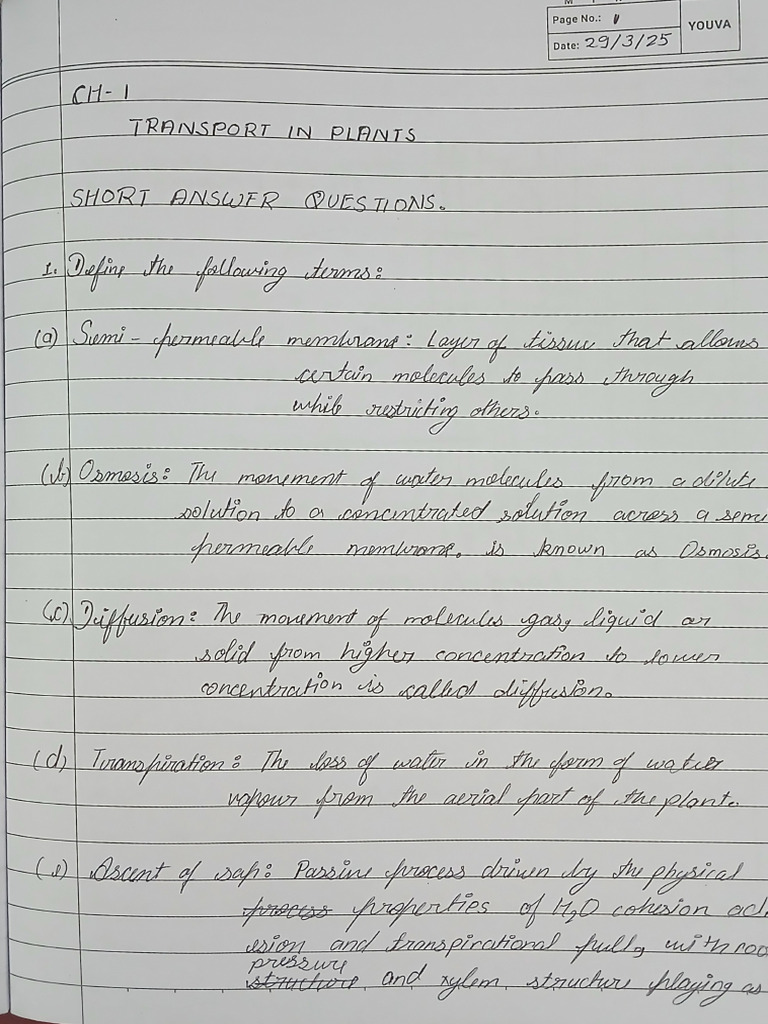 Page No.: 1
YOUVA
Date: 29/3/25
CH-1
TRANSPORT IN PLANTS
SHORT ANSWER QUESTIONS.
1. Define the following terms:
(a) Semi-permeable membrane: Layer of tissue that allows
certain molecules to pass through
while restricting others.
(b) Osmosis: The movement of water molecules from a dilute
solution to a concentrated solution across a semi
permeable membrane. is known as Osmosis.
(c) Diffusion: The movement of molecules gas, liquid or
solid from higher concentration to lower
concentration is called diffusion.
(d) Transpiration: The loss of water in the form of water
vapour from the aerial part of the plant.
(e) Ascent of sap: Passive process driven by the physical
process properties of H₂O cohesion ad
esion and transpirational pull, with roo
pressure
structure and xylem structure playing as